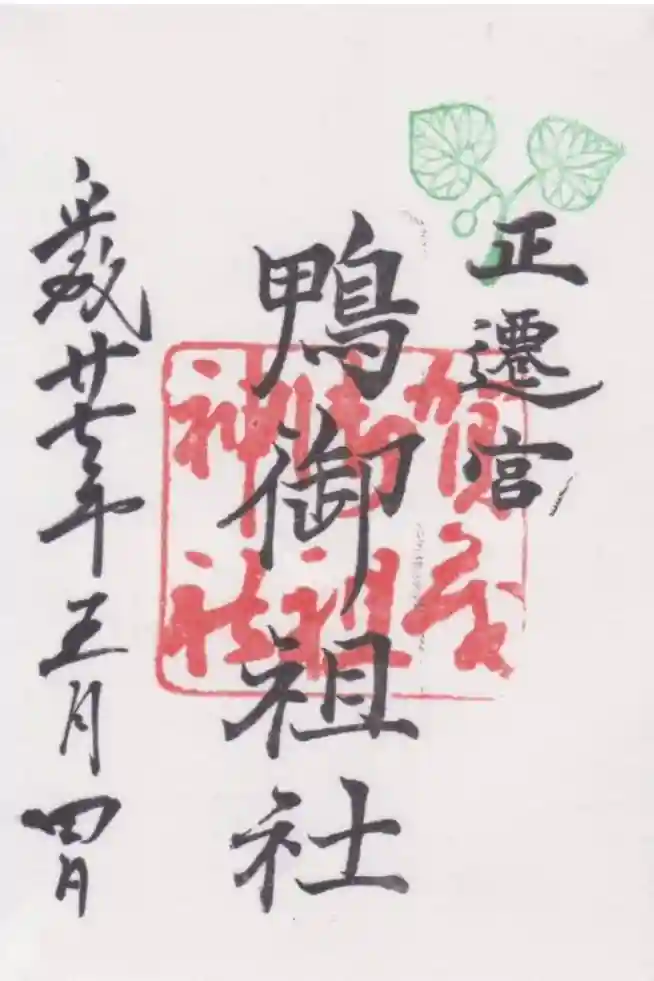 正遷宮
鴨御祖社
平成廿七年五月四日
賀茂
御祖
神社